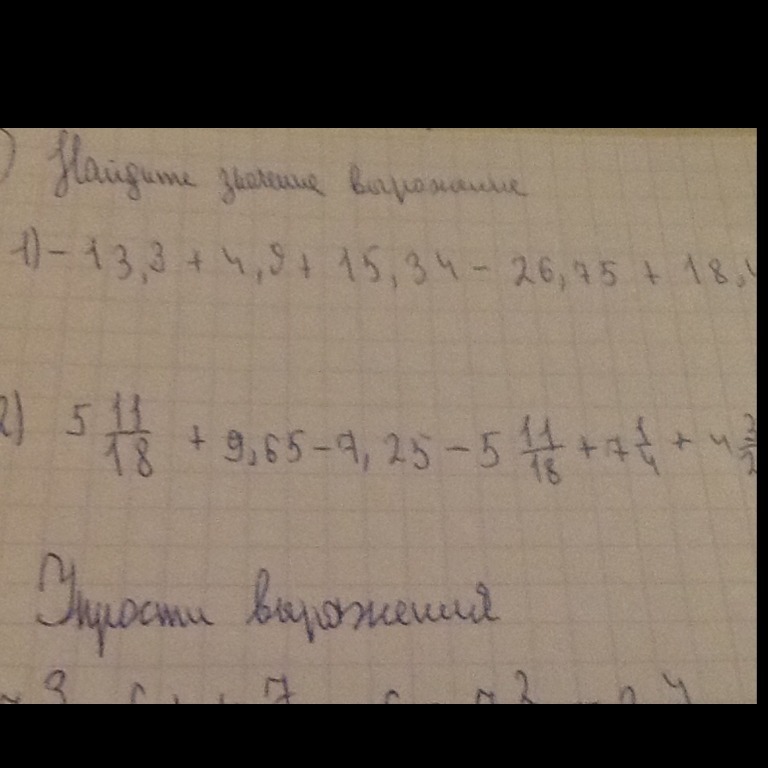 ) Найдите значение выражение
1) - 13,3 + 4,9 + 15,34 - 26,75 + 18,4
2) 5 11/18 + 9,65 - 7,25 - 5 11/18 + 7 1/4 + 4 3/2
Упрости выражения